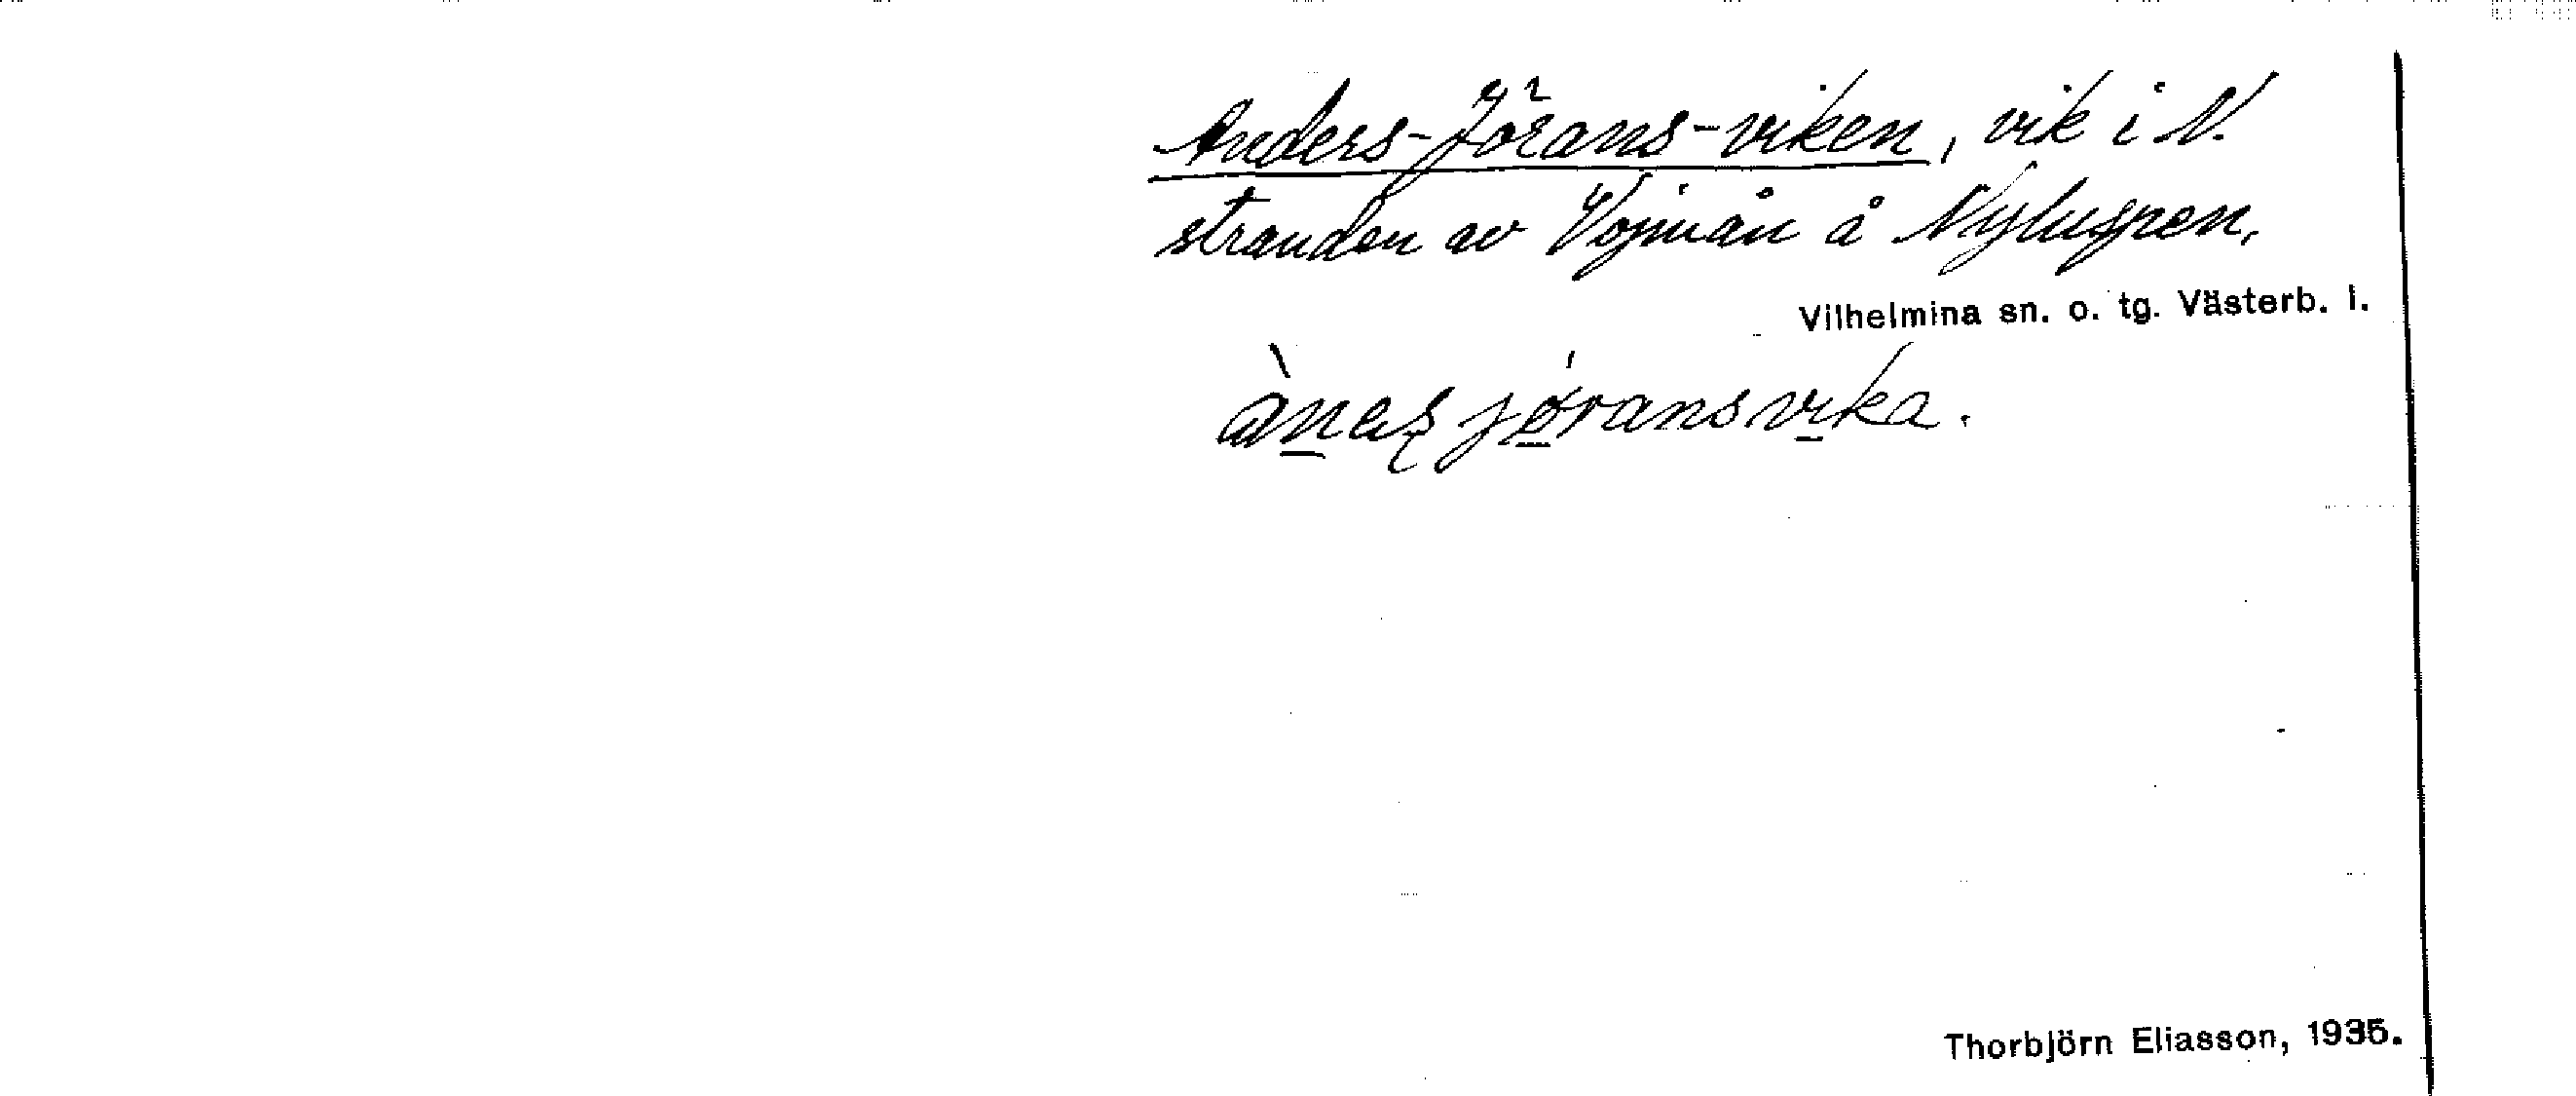 Anders-Jörans-viken, vik i N.
stranden av Vojmån å Nyluspen.
Vilhelmina sn. o. tg. Västerb. l.
ànaʂ jǿransvika.
Thorbjörn Eliasson, 1935.